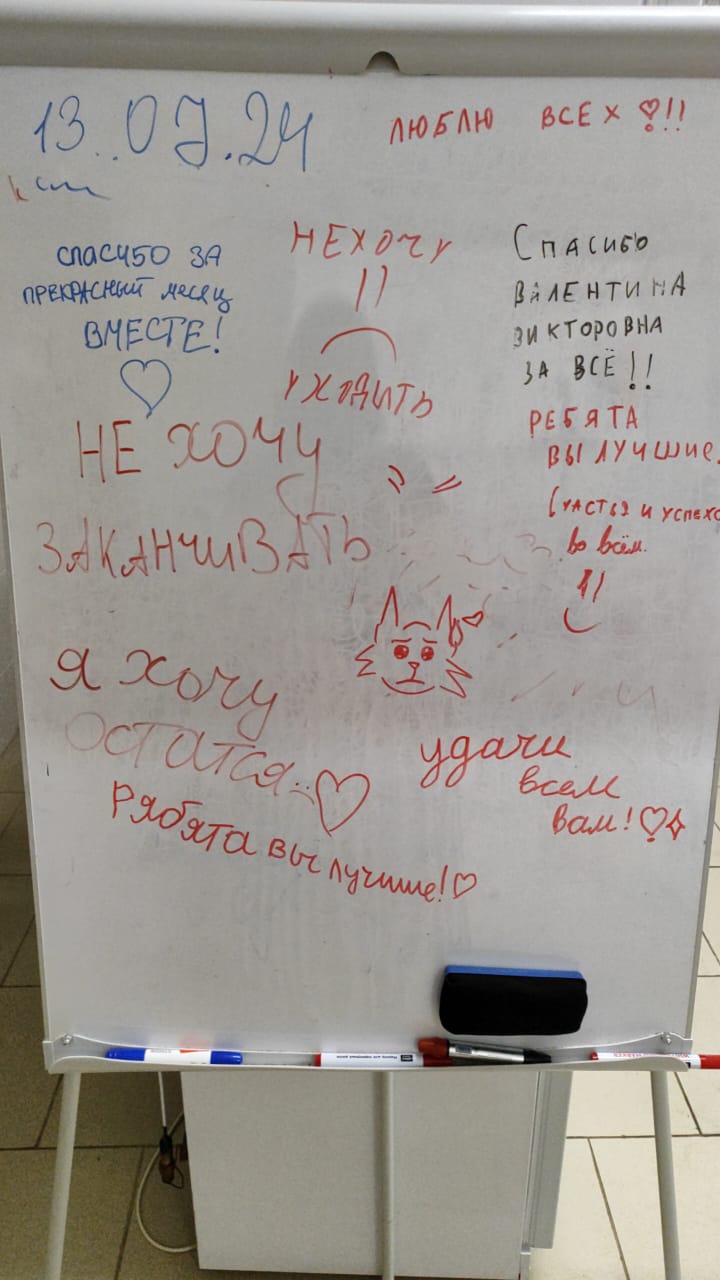 13.07.24
ЛЮБЛЮ ВСЕХ !!!
СПАСИБО ЗА
ПРЕКРАСНЫЙ месяц
ВМЕСТЕ!
НЕХОЧУ
УХОДИТЬ
СПАСИБО
ВАЛЕНТИНА
ВИКТОРОВНА
ЗА ВСЁ!!
РЕБЯТА
ВЫ ЛУЧШИЕ.
Счастья и успехо
во всём.
НЕ ХОЧУ
ЗАКАНЧИВАТЬ
Я хочу
остатся...
удачи
всем
вам!
Рябята вы лучшие!